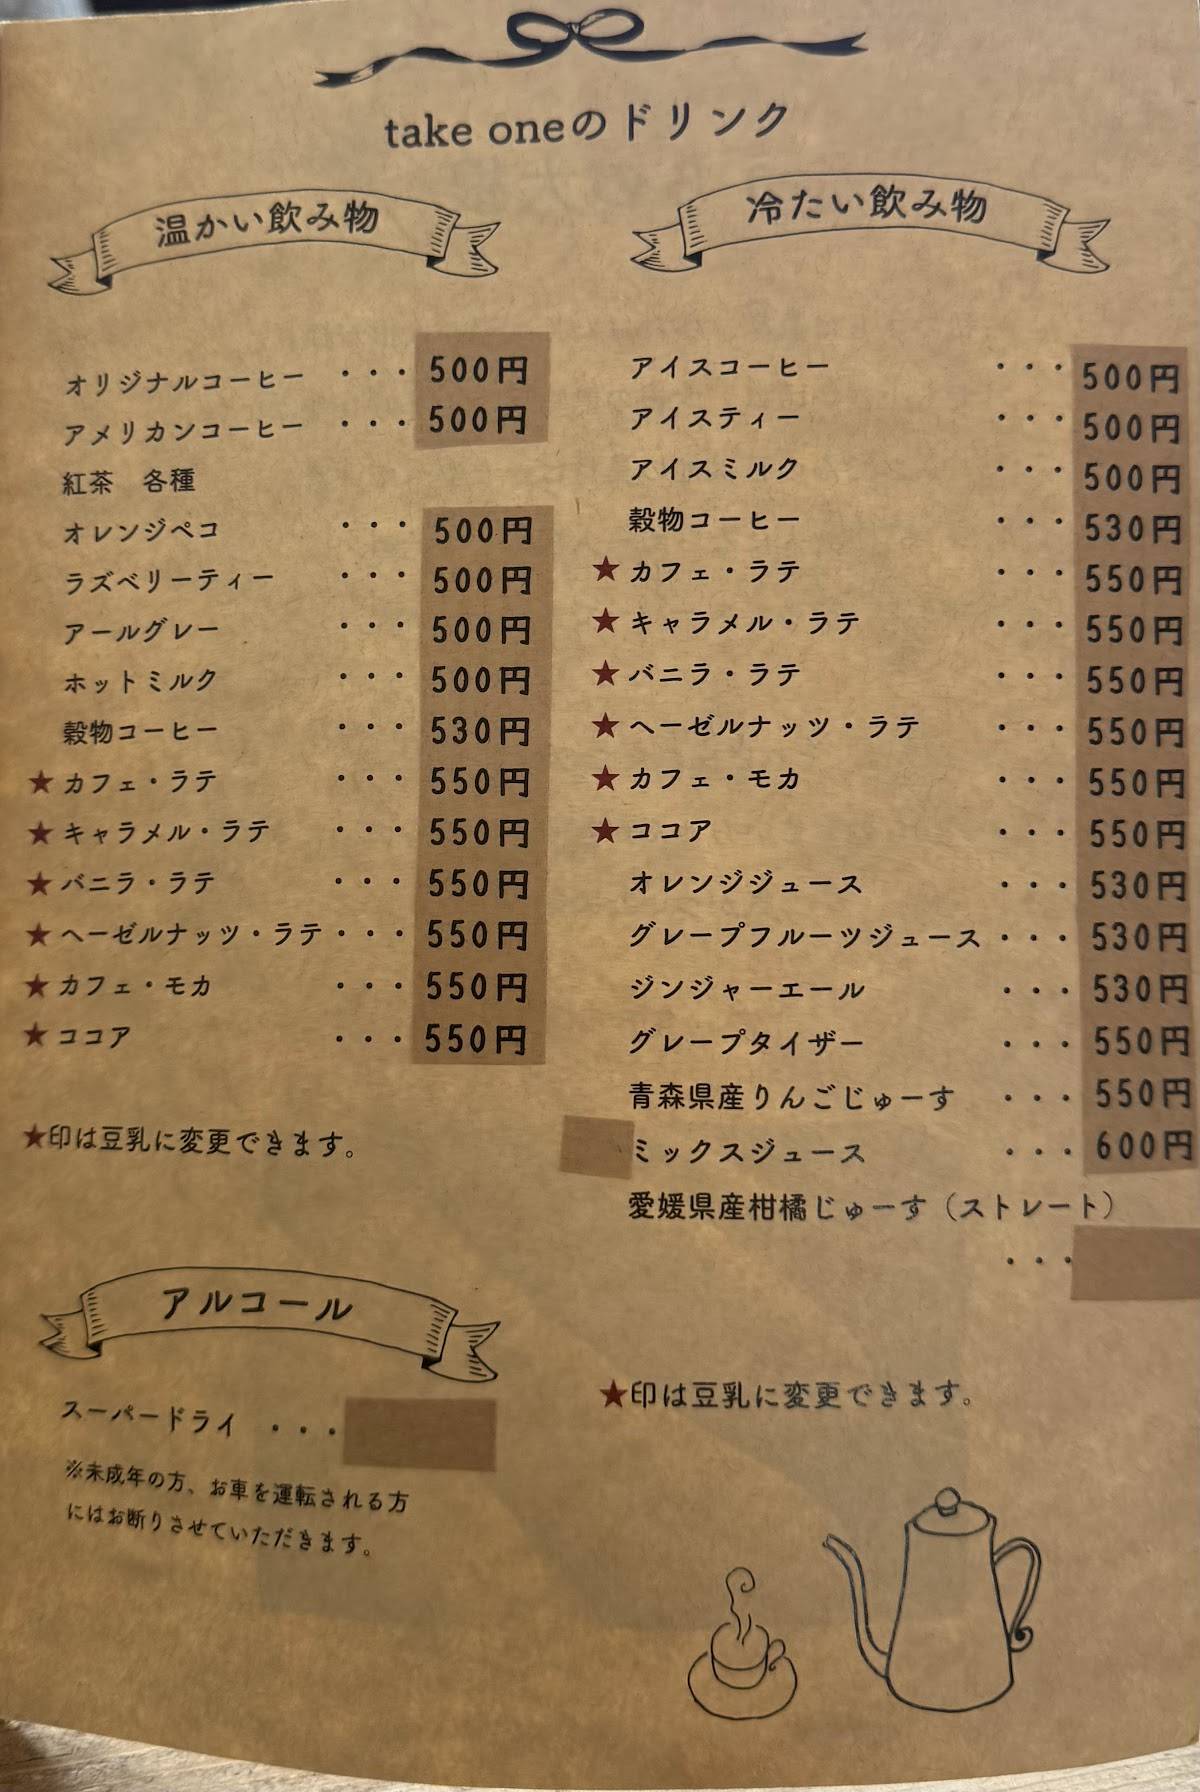 take oneのドリンク
温かい飲み物
オリジナルコーヒー ・・・ 500円
アメリカンコーヒー ・・・ 500円
紅茶 各種
オレンジペコ ・・・ 500円
ラズベリーティー ・・・ 500円
アールグレー ・・・ 500円
ホットミルク ・・・ 500円
穀物コーヒー ・・・ 530円
★カフェ・ラテ ・・・ 550円
★キャラメル・ラテ ・・・ 550円
★バニラ・ラテ ・・・ 550円
★ヘーゼルナッツ・ラテ・・・ 550円
★カフェ・モカ ・・・ 550円
★ココア ・・・ 550円
★印は豆乳に変更できます。
アルコール
スーパードライ ・・・
※未成年の方、お車を運転される方
にはお断りさせていただきます。
冷たい飲み物
アイスコーヒー ・・・ 500円
アイスティー ・・・ 500円
アイスミルク ・・・ 500円
穀物コーヒー ・・・ 530円
★カフェ・ラテ ・・・ 550円
★キャラメル・ラテ ・・・ 550円
★バニラ・ラテ ・・・ 550円
★ヘーゼルナッツ・ラテ ・・・ 550円
★カフェ・モカ ・・・ 550円
★ココア ・・・ 550円
オレンジジュース ・・・ 530円
グレープフルーツジュース ・・・ 530円
ジンジャーエール ・・・ 530円
グレープタイザー ・・・ 550円
青森県産りんごじゅーす ・・・ 550円
ミックスジュース ・・・ 600円
愛媛県産柑橘じゅーす（ストレート）
・・・
★印は豆乳に変更できます。